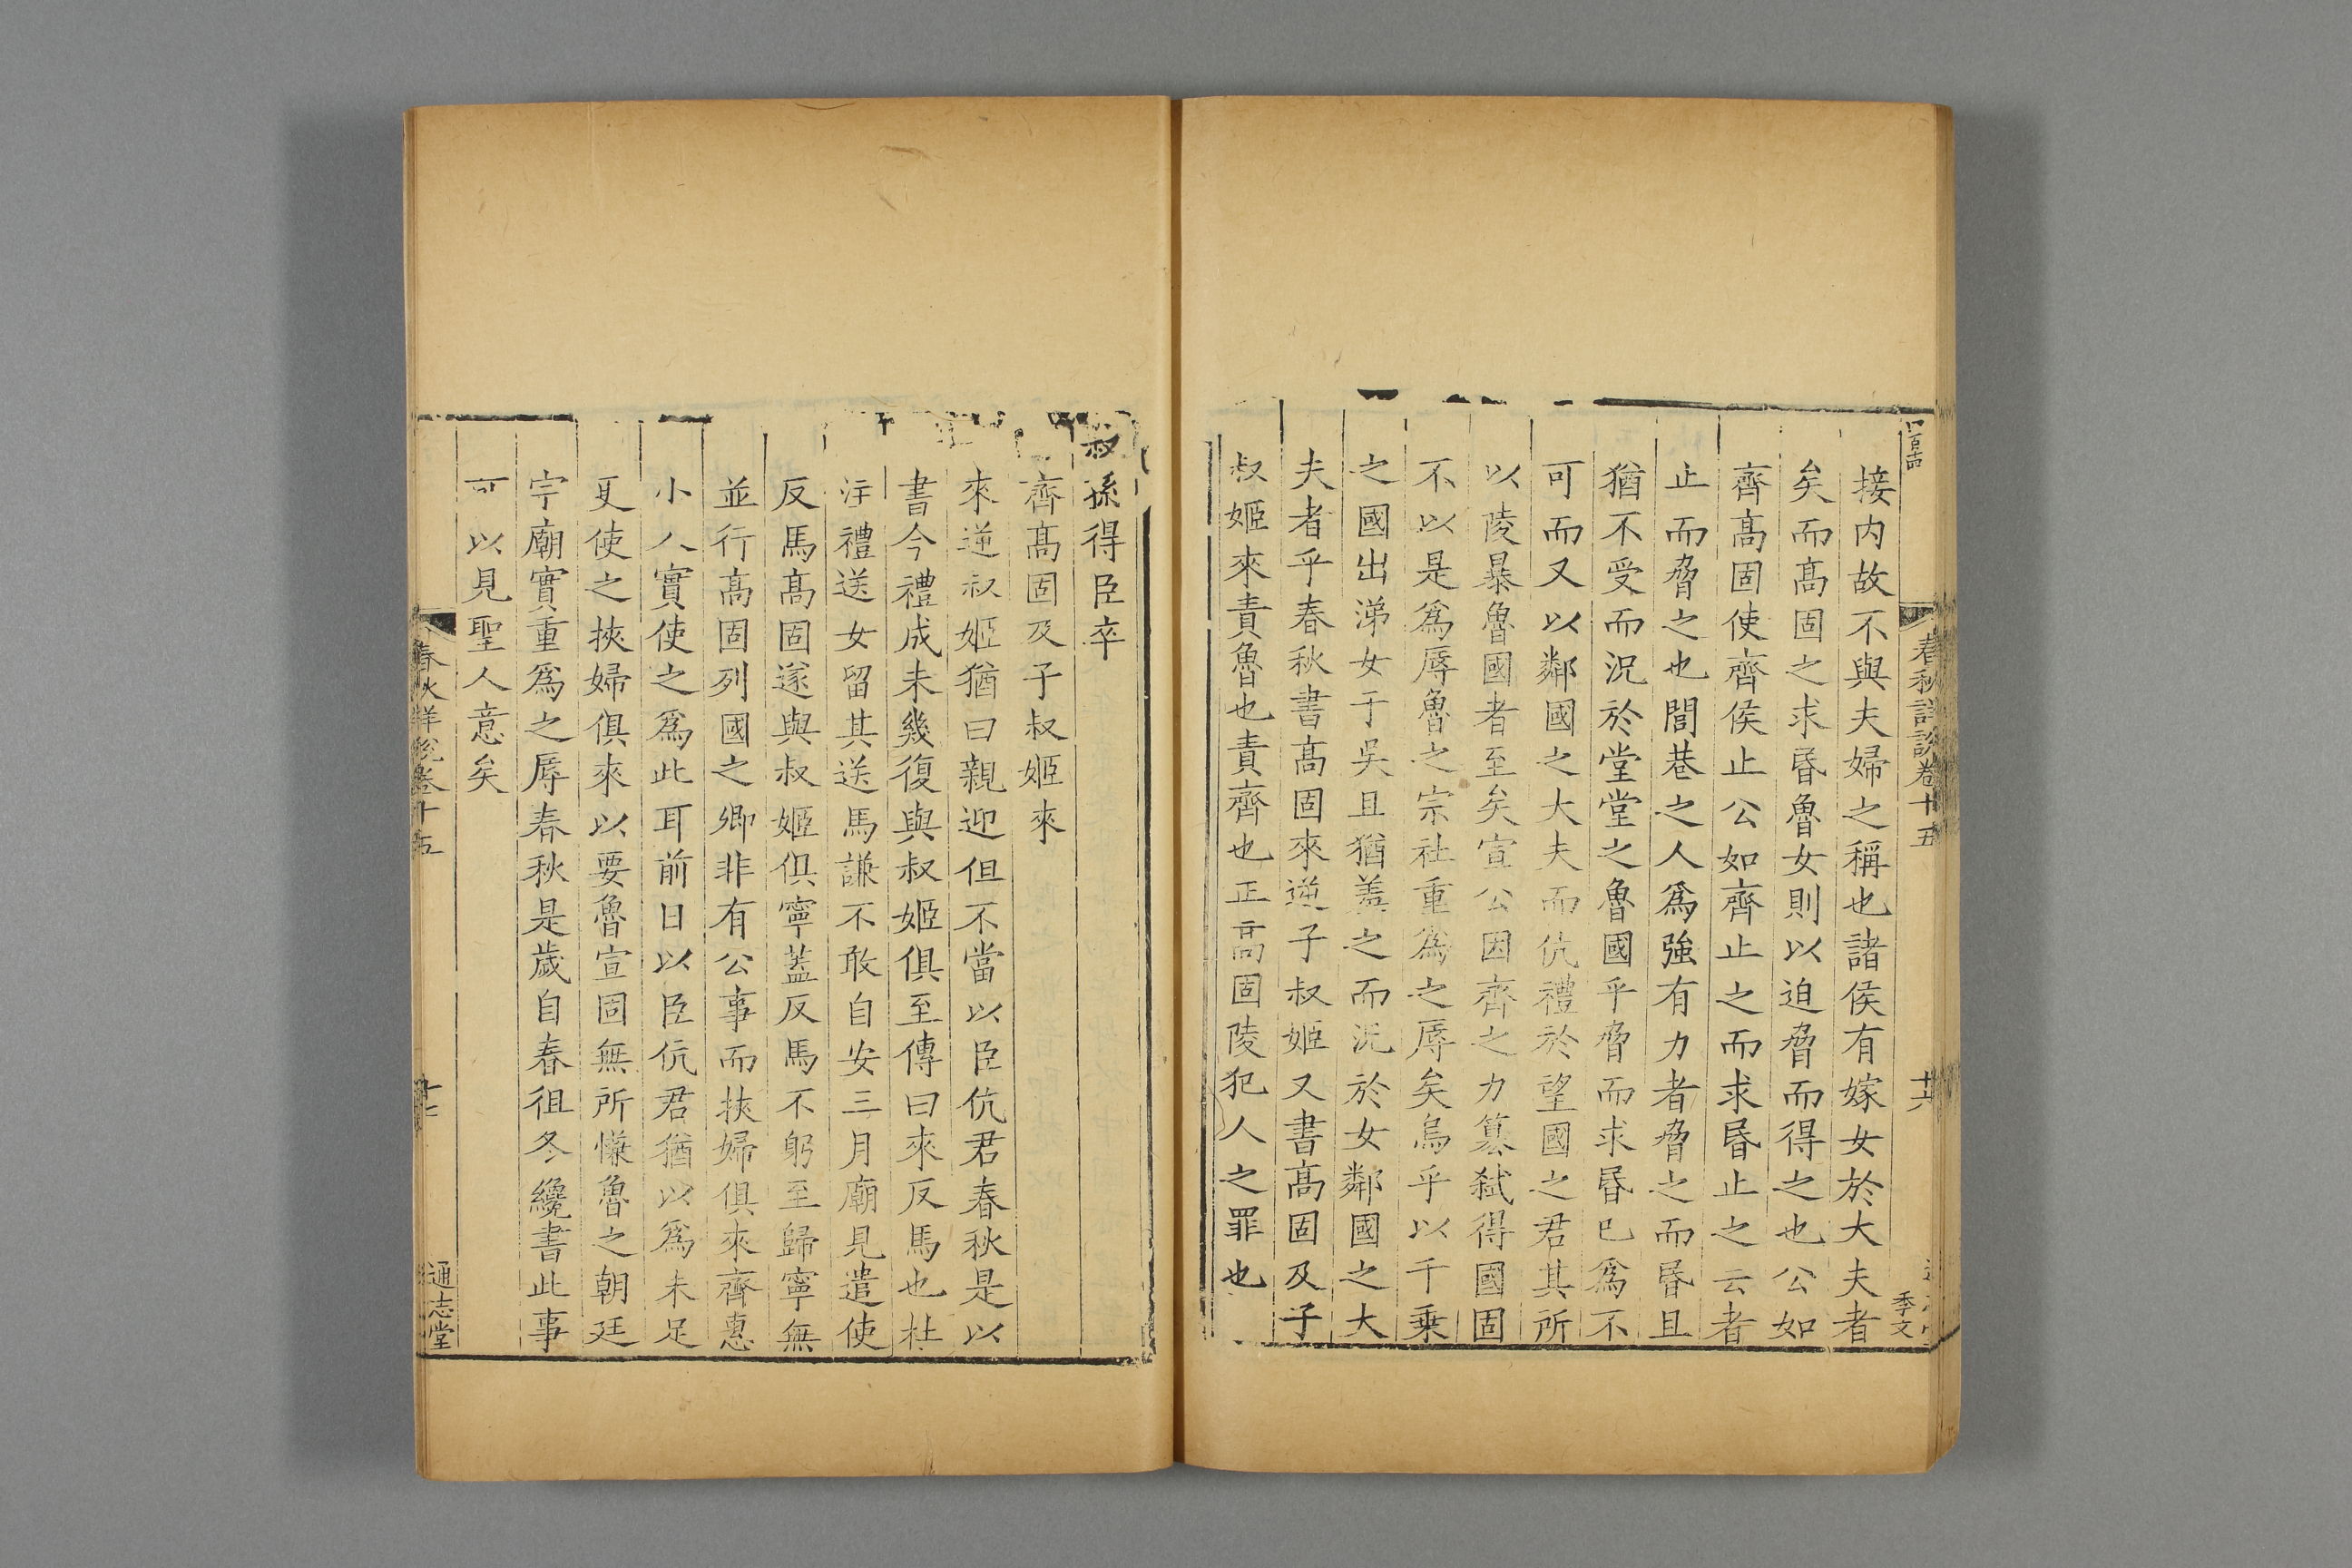 春秋詳說卷十五
十六
季文
接内故不與夫婦之稱也諸侯有嫁女於大夫者
矣而髙固之求昬魯女則以迫脅而得之也公如
齊髙固使齊侯止公如齊止之而求昬止之云者
止而脅之也閭巷之人爲強有力者脅之而昬且
猶不受而況於堂堂之魯國乎脅而求昬已爲不
可而又以鄰國之大夫而伉禮於望國之君其所
以陵暴魯國者至矣宣公因齊之力篡弑得國固
不以是爲辱魯之宗社重爲之辱矣烏乎以千乗
之國出涕女于吳且猶羞之而況於女鄰國之大
夫者乎春秋書髙固來逆子叔姬又書髙固及子
叔姬來責魯也責齊也正髙固陵犯人之罪也
叔孫得臣卒
齊髙固及子叔姬來
來逆叔姬猶曰親迎但不當以臣伉君春秋是以
書今禮成未幾復與叔姬俱至傳曰來反馬也杜
注禮送女留其送馬謙不敢自安三月廟見遣使
反馬髙固遂與叔姬俱寧蓋反馬不躬至歸寧無
並行髙固列國之卿非有公事而挾婦俱來齊惠
小人實使之爲此耳前日以臣伉君猶以爲未足
更使之挾婦俱來以要魯宣固無所慊魯之朝廷
宇廟實重爲之辱春秋是歲自春徂冬纔書此事
可以見聖人意矣
春秋詳說卷十五
十七
通志堂